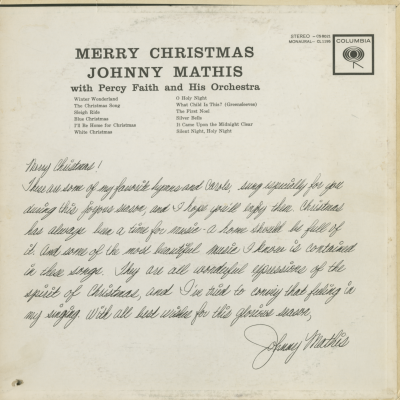 STEREO
MONAURAL
COLUMBIA
MERRY CHRISTMAS
JOHNNY MATHIS
with Percy Faith and His Orchestra
Winter Wonderland
The Christmas Song
Sleigh Ride
Blue Christmas
I'll Be Home for Christmas
White Christmas
O Holy Night
What Child Is This? (Greensleeves)
The First Noel
Silver Bells
It Came Upon the Midnight Clear
Silent Night, Holy Night
Merry Christmas!
These are some of my favorite hymns and carols, sung especially for you
during this joyous season, and I hope you'll enjoy them. Christmas
has always been a time for music - a home should be full of
it. And some of the most beautiful music I know is contained
in these songs. They are all wonderful expressions of the
spirit of Christmas, and I've tried to convey that feeling in
my singing. With all best wishes for this glorious season,
Johnny Mathis